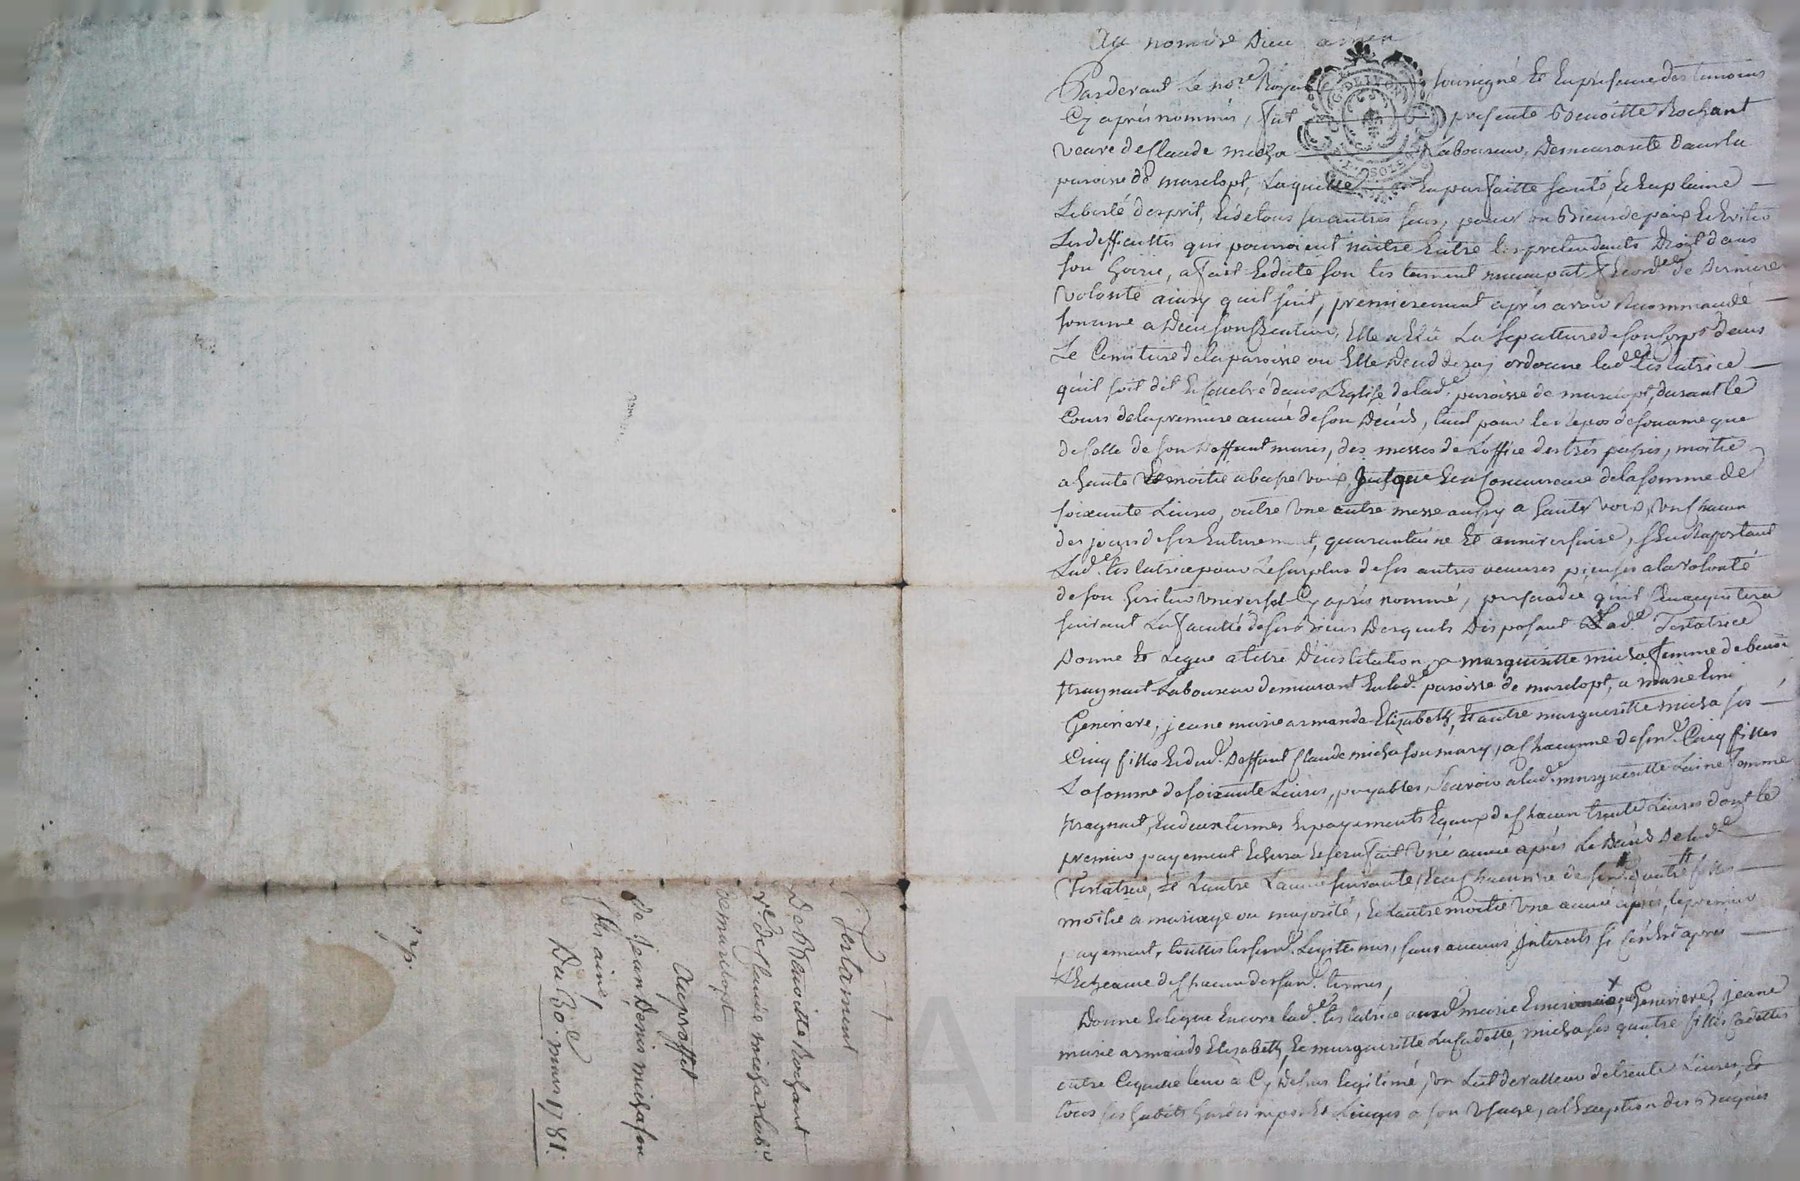 Au nom de Dieu amen
Pardevant Le no.re Royal soussigné Et En presence des temoins
Cy après nommés, fut presente Benoitte Rochant
veuve de Claude micha Laboureur, Demeurante dans la
paroisse de marclopt, Laquelle En parfaitte santé, & En plaine
Liberté d'esprit, & de tous ses autres sens, pour un Bien de paix & Eviter
Les difficultés qui pourroient naitre Entre les pretendants Droit dans
son hoirie, a fait & dicté son testament nuncupatif & ord.ce de Derniere
volonté ainsy qu'il suit, premierement après avoir Recommandé
son ame a Dieu son Createur, Elle a Elû La sepulture de son Corps Dans
Le Cimitiere de la paroisse ou Elle Decedderaj ordonne lad.e testatrice
qu'il soit dit & Celebré dans L'Eglise de lad.e paroisse de marclopt, durant le
Cours de la premiere année de son Décés, tant pour le repos de son ame que
de Celle de son Deffunt mary, des messes de L'office des trés passés, moitié
a haute & moitié a basse voix, jusque En concurrence de la somme de
soixante Livres, outre une autre messe aussy a haute voix, un chacun
des jours de ses Enterrement, quarantaine Et anniversaire, s'En Raportant
Lad.e testatrice pour Le surplus de ses autres oeuvres pieuses a la volonté
de son heritier universel Cy après nommé, persuadée qu'il s'En acquitera
suivant La faculté de ses Biens Desquels Disposant Lad.e Testatrice
Donne Et Legue a titre D'institution a marguiritte micha femme de benoit
fraynant Laboureur demeurant En lad.e paroisse de marclopt, a marie
Genevieve, jeane marie armande Elizabeth, Et autre marguiritte micha ses
Cinq filles & dud. Deffunt Claude micha son mary, a Chacunne de sesd. Cinq filles
La somme de soixante Livres, payables, sçavoir a lad.e marguiritte L'ainé femme
fraynant, En deux termes & payements Egaux de Chacun trente Livres dont le
premier payement Echera & sera fait une année après Le Décés De lad.e
Testatrice, Et L'autre L'année suivante, & a Chacunne de sesd. quatre filles
moitié a mariage ou majorité, & L'autre moitié une année après, le premier
payement, touttes lesquelles Legitimes, sans aucuns jnterests si Ce n'Est après
L'Echeance de Chacun desd. termes,
Donne & Legue Encore lad.e testatrice auxd. marie Genevieve, jeane
marie armande Elizabeth, & marguiritte La Cadette, micha ses quatre filles Cadettes
outre Ce qu'elle leur a Cy Dessus legitimé, un Lit de valleur de trente Livres, Et
tous ses habits hardes nipes Et Linges a son usage, a l'Exception des Bagues
Testament
De Benoitte Rochant
v.e de Claude micha Lab.r
de marclopt
Au proffit
de jean Denis micha son
fils ainé,
Du 30. mars 1781.
exp.